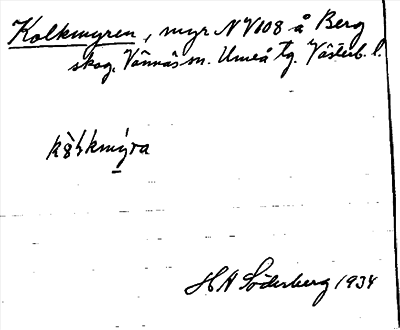 Kolkmyren, myr NV 108 å Berg
skog. Vännäs sn. Umeå tg. Västerb. l.
H A Söderberg 1934